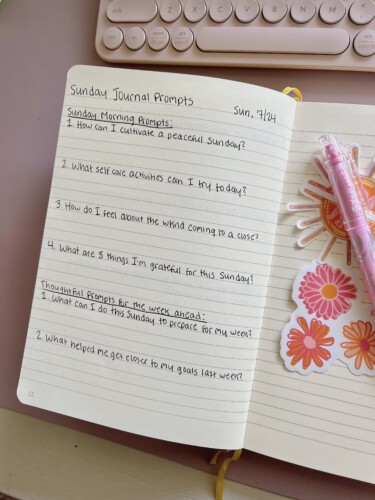 Sunday Journal Prompts
Sun. 7/24
Sunday Morning Prompts:
1. How can I cultivate a peaceful Sunday?
2. What self care activities can I try today?
3. How do I feel about the wknd coming to a close?
4. What are 3 things I'm grateful for this Sunday?
Thoughtful Prompts for the week ahead:
1. What can I do this Sunday to prepare for my week?
2. What helped me get closer to my goals last week?